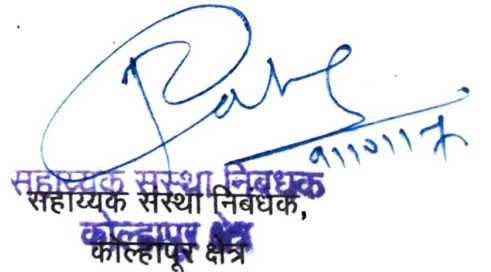 ९।१०।१७
सहाय्यक संस्था निबंधक
सहाय्यक संस्था निबंधक,
कोल्हापूर क्षेत्र
कोल्हापूर क्षेत्र